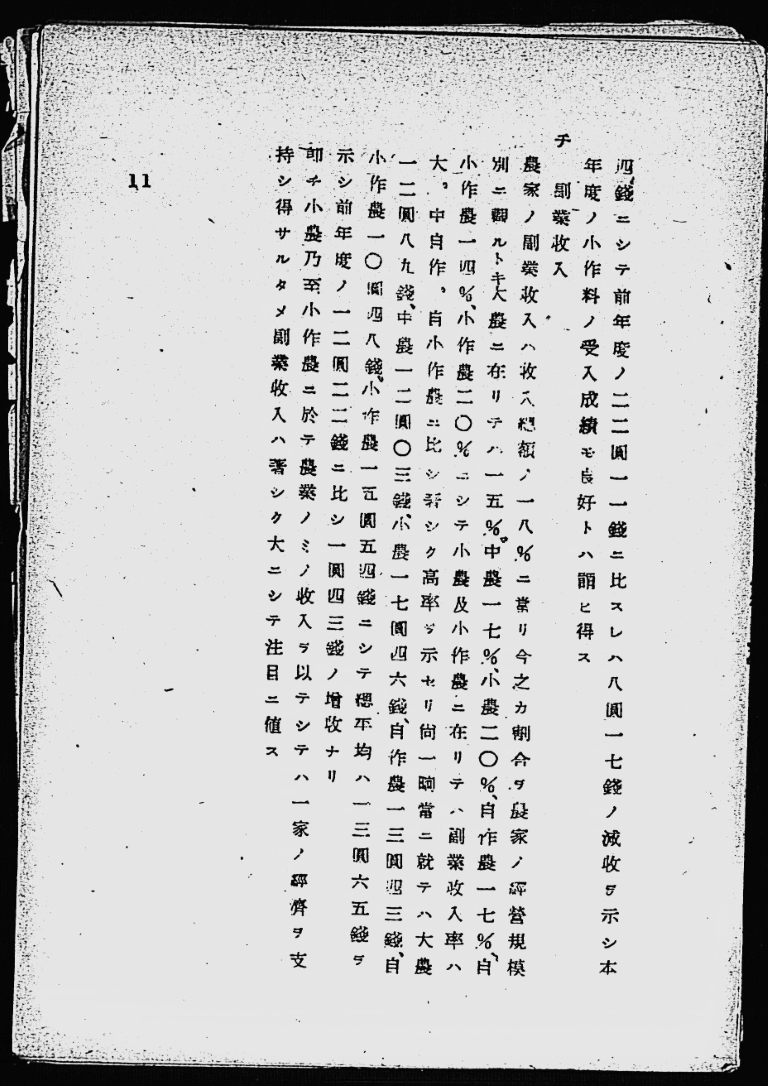 四錢ニシテ前年度ノ二二圓一一錢ニ比スレハ八圓一七錢ノ減收ヲ示シ本
年度ノ小作料ノ受入成績モ良好トハ謂ヒ得ス
チ 副業收入
農家ノ副業收入ハ收入總額ノ一八%ニ當リ今之カ割合ヲ農家ノ經營規模
別ニ觀ルトキ大農ニ在リテハ一五%、中農一七%、小農二〇%、自作農一七%、自
小作農一四%、小作農二〇%ニシテ小農及小作農ニ在リテハ副業收入率ハ
大、中自作、自小作農ニ比シ著シク高率ヲ示セリ尙一晌當ニ就テハ大農
一二圓八九錢、中農一二圓〇三錢、小農一七圓四六錢、自作農一三圓四三錢、自
小作農一〇圓四八錢、小作農一五圓五四錢ニシテ總平均ハ一三圓六五錢ヲ
示シ前年度ノ一二圓二二錢ニ比シ一圓四三錢ノ增收ナリ
卽チ小農乃至小作農ニ於テ農業ノミノ收入ヲ以テシテハ一家ノ經濟ヲ支
持シ得サルタメ副業收入ハ著シク大ニシテ注目ニ値ス
11